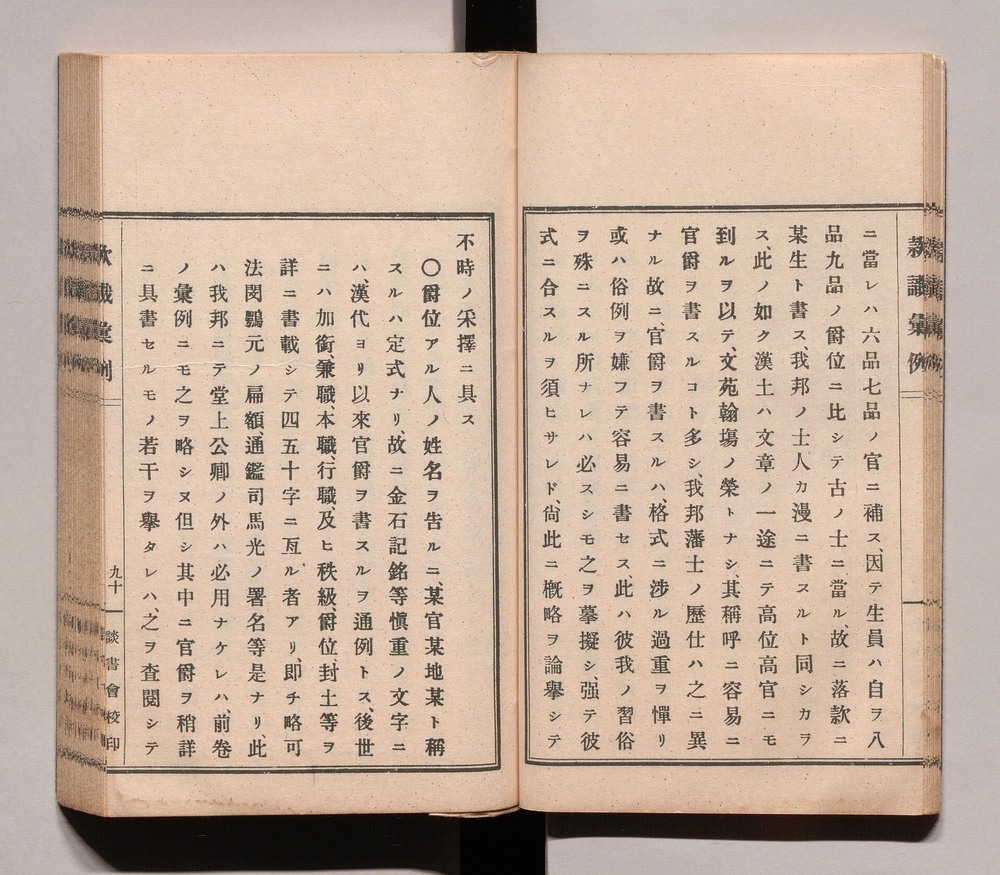 款識彙例
ニ當レハ六品七品ノ官ニ補ス、因テ生員ハ自ヲ八
品九品ノ爵位ニ比シテ古ノ士ニ當ル、故ニ落款ニ
某生ト書ス、我邦ノ士人カ漫ニ書スルト同シカヲ
ス、此ノ如ク漢土ハ文章ノ一途ニテ高位高官ニモ
到ルヲ以テ、文苑翰塲ノ榮トナシ、其稱呼ニ容易ニ
官爵ヲ書スルコト多シ、我邦藩士ノ歷仕ハ之ニ異
ナル故ニ、官爵ヲ書スルハ、格式ニ涉ル過重ヲ憚リ
或ハ俗例ヲ嫌フテ容易ニ書セス、此ハ彼我ノ習俗
ヲ殊ニスル所ナレハ必スシモ之ヲ摹擬シ、强テ彼
式ニ合スルヲ須ヒサレド、尙此ニ槪略ヲ論擧シテ
不時ノ采擇ニ具ス
〇爵位アル人ノ姓名ヲ告ルニ、某官某地某ト稱
スルハ定式ナリ、故ニ金石記銘等愼重ノ文字ニ
ハ、漢代ヨリ以來官爵ヲ書スルヲ通例トス、後世
ニハ加銜、兼職、本職、行職、及ヒ秩級爵位封土等ヲ
詳ニ書載シテ四五十字ニ亙ル者アリ、即チ略可
法閔鶚元ノ扁額、通鑑司馬光ノ署名等是ナリ、此
ハ我邦ニテ堂上公卿ノ外ハ必用ナケレハ、前卷
ノ彙例ニモ之ヲ略シヌ但シ其中ニ官爵ヲ稍詳
ニ具書セルモノ若干ヲ擧タレハ、之ヲ査閱シテ
款識彙例
九十
談書會校印